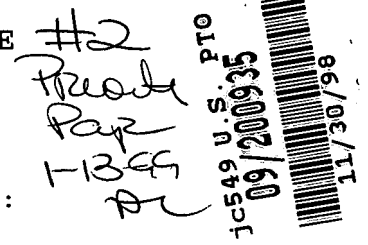 E #2
Prior Art
Pap
1-13-99
:
jc549 U.S. PTO
09/200935
11/30/98